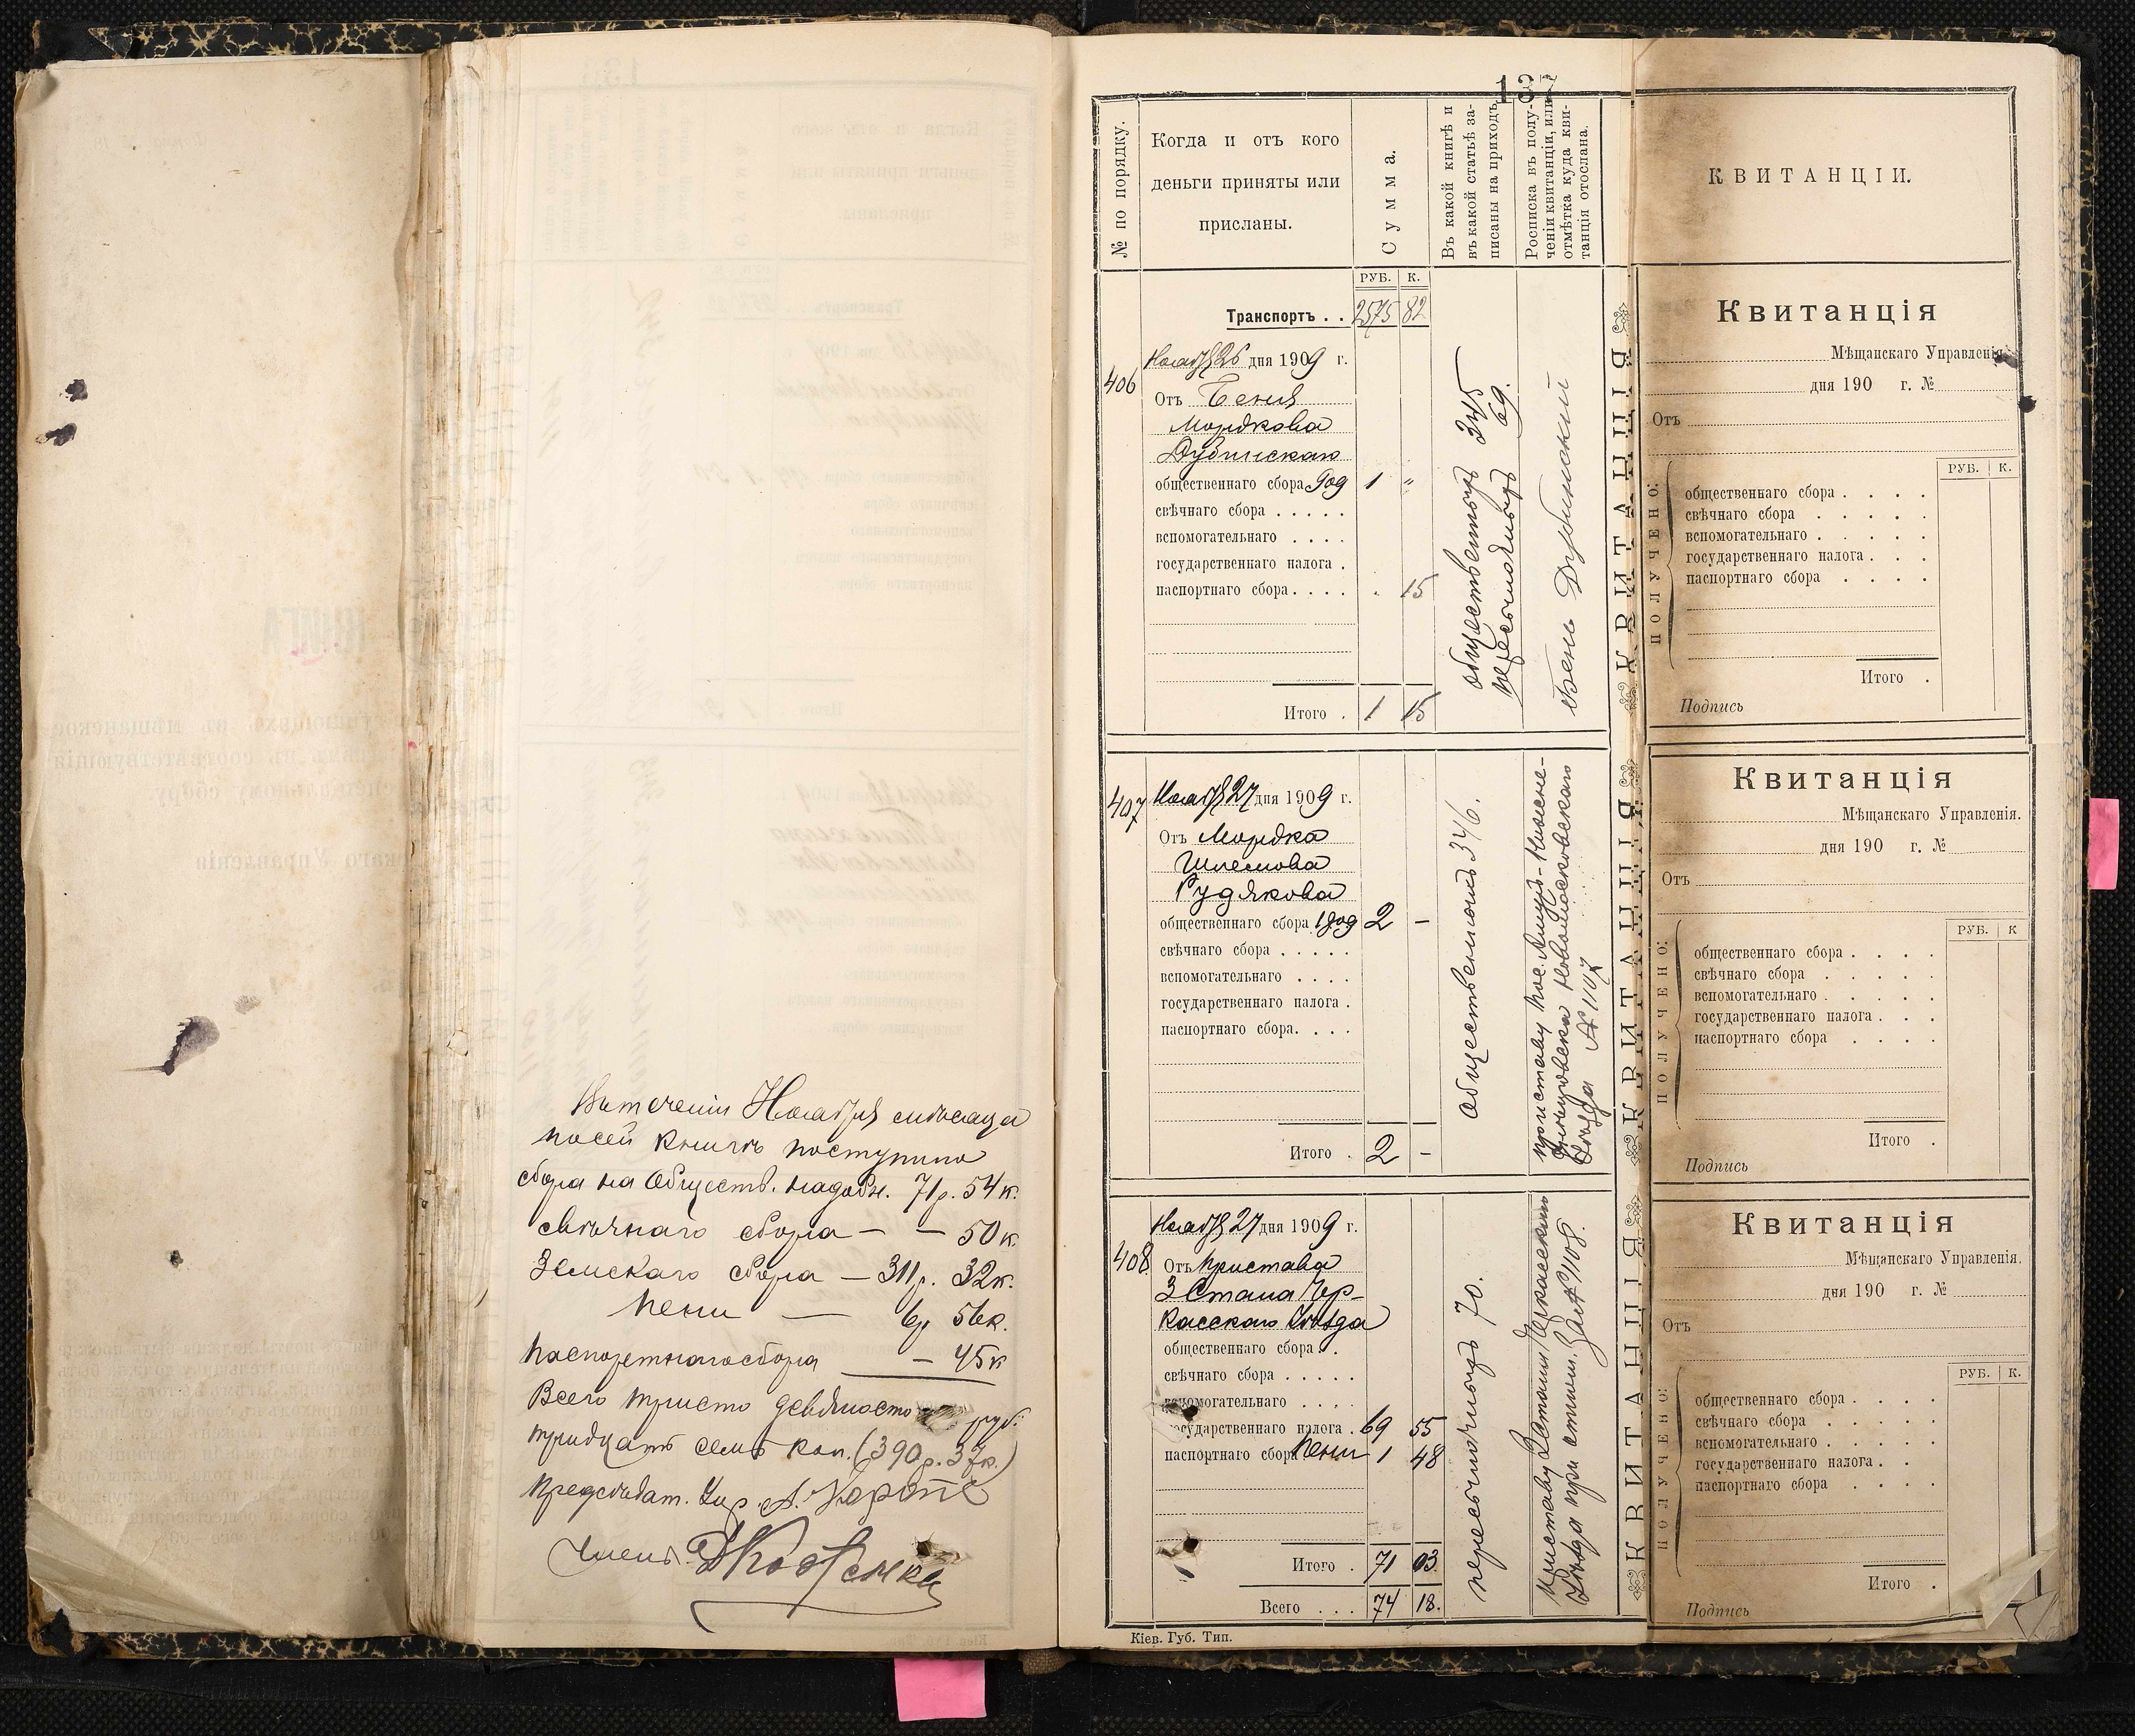 Въ теченіи Ноября мѣсяца
посей книгѣ поступило
сбора на Обществ. надобн. 71 р. 54 к.
свѣчнаго сбора — — 50 к.
Земскаго сбора — 311 р. 32 к.
пени — 6 р 56 к.
паспортнаго сбора — 45 к
Всего триста девяносто руб.
тридцать семь коп. (390 р. 37 к.)
Предсѣдат. Упр. А.
Членъ
137
№ по порядку.
Когда и отъ кого
деньги приняты или
присланы.
Сумма.
Въ какой книгѣ и
въ какой статьѣ за-
писаны на приходъ
Росписка въ полу-
ченіи квитанціи, или
отмѣтка куда кви-
танція отослана.
РУБ. К.
Транспортъ . . 2575 82
406
Ноября 26 дня 1909 г.
Отъ Беня
Мордкова
Дубинскаго
общественнаго сбора 909 1 "
свѣчнаго сбора . . . . .
вспомогательнаго . . . .
государственнаго налога .
паспортнаго сбора . . . . 15
Итого . 1 15
общественныхъ 345
пересыльныхъ 69.
Бень Дубинский
407
Ноября 27 дня 1909 г.
Отъ Мордка
Шлемова
Рудякова
общественнаго сбора 1909 2 —
свѣчнаго сбора . . . . .
вспомогательнаго . . . .
государственнаго налога .
паспортнаго сбора . . . .
Итого . 2 —
Общественномъ 346.
приставу пос. Амуръ-Нижне-
Днѣпровска Новомосковскаго
Уѣзда № 1107
408
Ноября 27 дня 1909 г.
Отъ Пристава
3 Стана Чер-
касскаго Уѣзда
общественнаго сбора . .
свѣчнаго сбора . . . . .
вспомогательнаго . . . .
государственнаго налога . 69 55
паспортнаго сбора пени 1 48
Итого . 71 03
Всего . . . 74 18.
пересыльныхъ 70.
Приставу 3 стана Черкасскаго
Уѣзда при отнош. за № 1108.
Кіев. Губ. Тип.
КВИТАНЦІЯ
КВИТАНЦІЯ
КВИТАНЦІЯ
КВИТАНЦІИ.
Квитанція
Мѣщанскаго Управленія
дня 190 г. №
Отъ
РУБ. К.
ПОЛУЧЕНО:
общественнаго сбора . . . .
свѣчнаго сбора . . . . .
вспомогательнаго . . . . .
государственнаго налога . . .
паспортнаго сбора . . . .
Итого .
Подпись
Квитанція
Мѣщанскаго Управленія.
дня 190 г. №
Отъ
РУБ. К
ПОЛУЧЕНО:
общественнаго сбора . . . .
свѣчнаго сбора . . . . .
вспомогательнаго . . . . .
государственнаго налога . . .
паспортнаго сбора . . . .
Итого .
Подпись
Квитанція
Мѣщанскаго Управленія.
дня 190 г. №
Отъ
РУБ. К.
ПОЛУЧЕНО:
общественнаго сбора . . . .
свѣчнаго сбора . . . . .
вспомогательнаго . . . . .
государственнаго налога . .
паспортнаго сбора . . . .
Итого .
Подпись